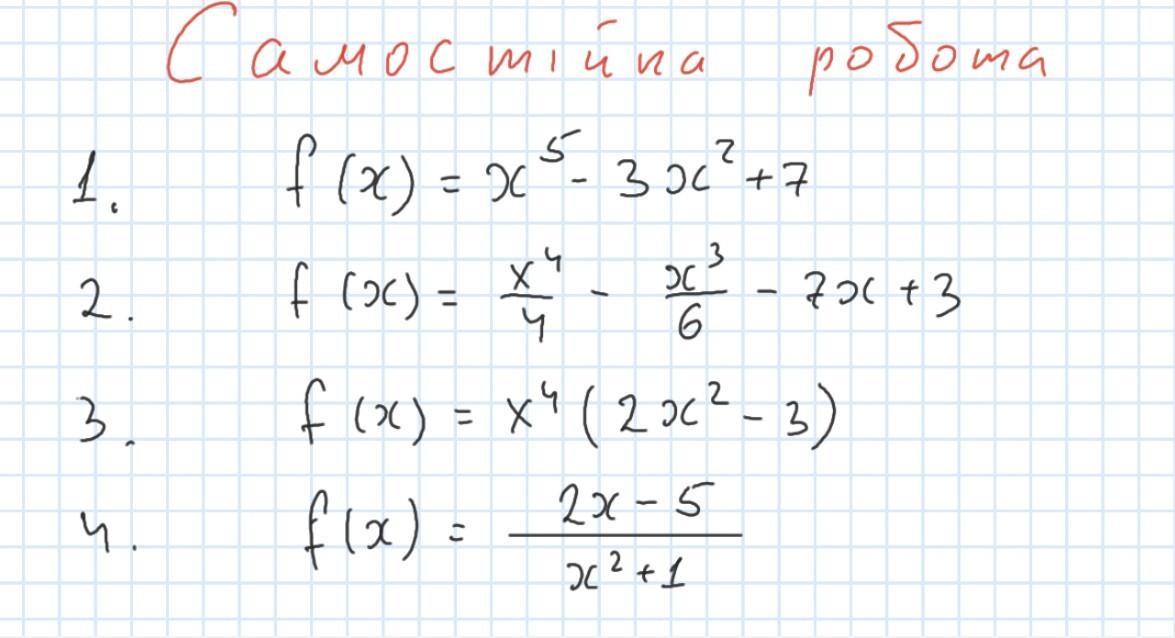 Самостійна робота
1. f(x) = x⁵ - 3x² + 7
2. f(x) = x⁴/4 - x³/6 - 7x + 3
3. f(x) = x⁴(2x² - 3)
4. f(x) = (2x - 5)/(x² + 1)